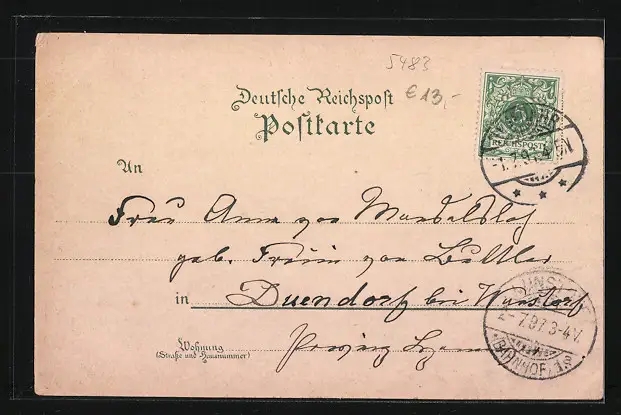 5483
€ 13,-
Deutsche Reichspost
Postkarte
REICHSPOST
An
Frau Anna von Mandelsloh
geb. Freiin von Buttlar
in Duendorf bei Wunstorf
7.97 3-4V.
BAHNHOF
Wohnung
(Straße und Hausnummer)
Provinz